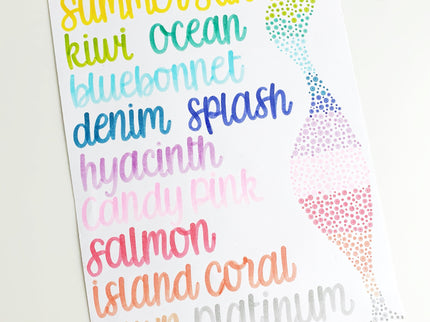 kiwi ocean
bluebonnet
denim splash
hyacinth
candy pink
salmon
island coral
platinum